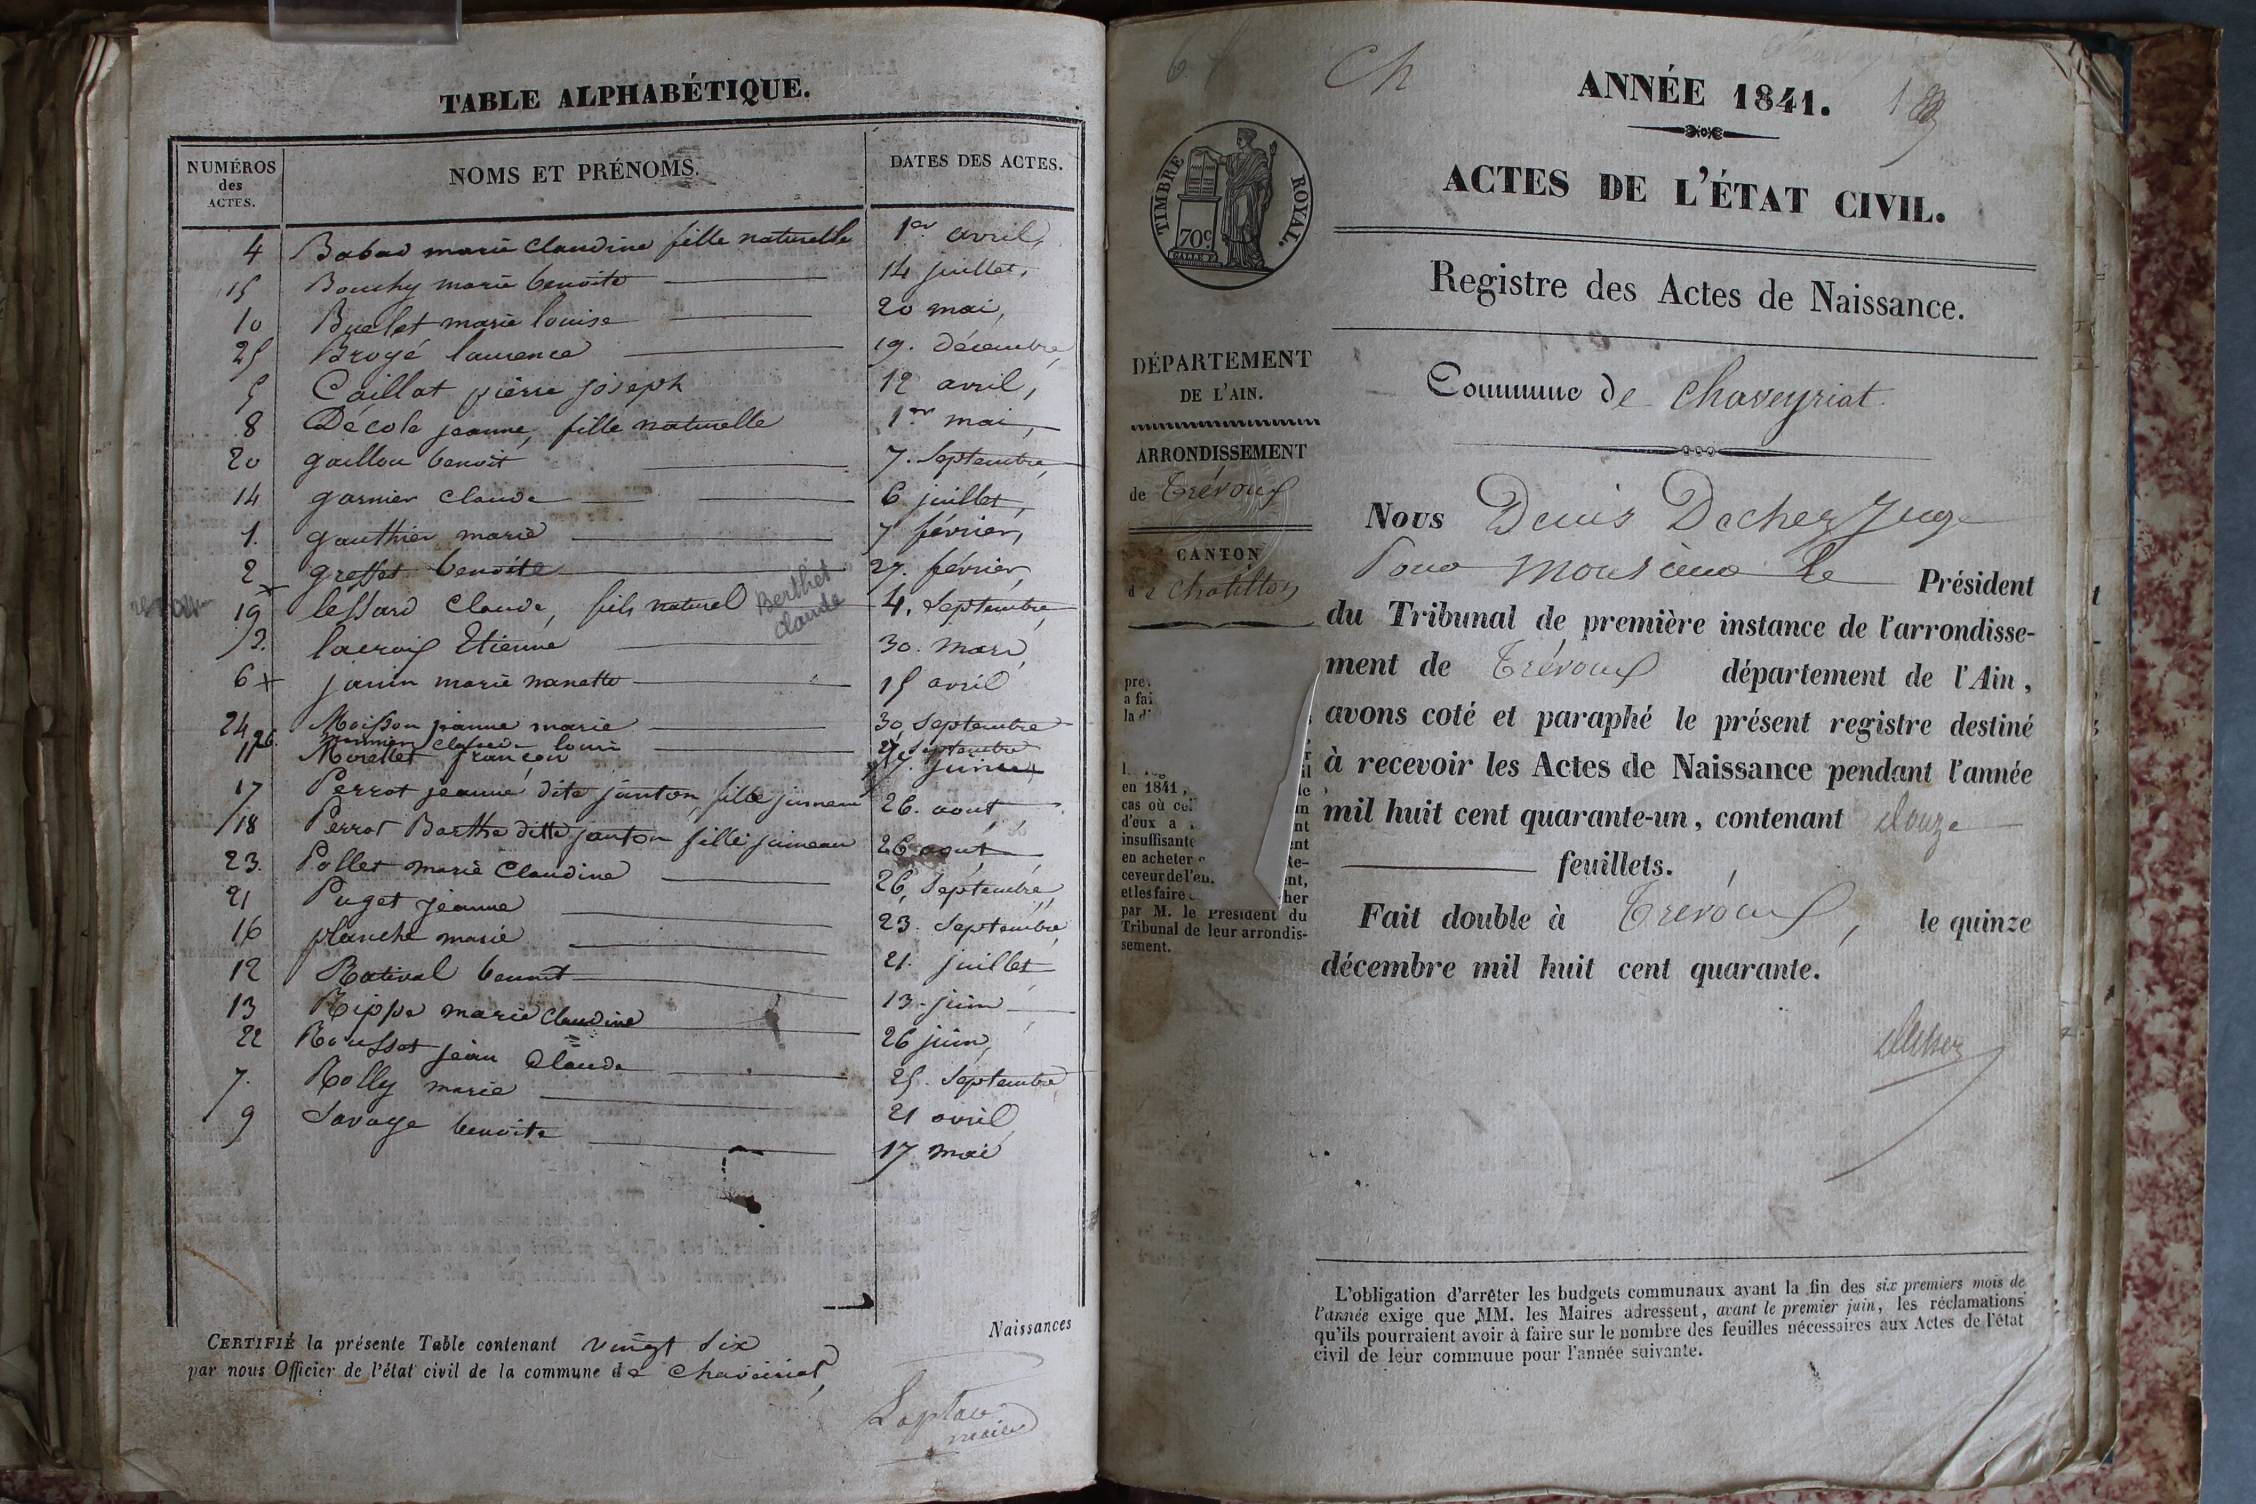 TABLE ALPHABÉTIQUE.
NUMÉROS des ACTES. NOMS ET PRÉNOMS. DATES DES ACTES.
4 Babad marie claudine fille naturelle 1er avril,
15 Bouchy marie benoite 14 juillet,
10 Buelet marie louise 20 mai,
25 Broyé laurence 19. décembre,
5 Caillat pierre joseph 12 avril,
8 Décole jeanne, fille naturelle 1er mai,
20 gaillon benoit 7. Septembre,
14 garnier claude 6 juillet,
1. gauthier marie 7 février,
2 greffet benoite 27. février,
19 lessard claude, fils naturel Berthet claude 4. Septembre,
3. lacroix Etienne 30. mars,
6 + janin marie nanette 15 avril
24 Moisson jeanne marie 30 Septembre
26. claude louis Septembre
11 Morellet françois juin
17 Perrot jeanne dite janton, fille jumeau 26. aout,
18 Perrot Barthe ditte janton fille jumeau 26 aout,
23. Pollet marie Claudine 26, Septembre,
21 Puget jeanne 23. Septembre,
16 planche marie 21. juillet
12 Rativat benoit 13. juin
13 Rippe marie Claudine 26 juin,
22 Rousset jean Claude 25. Septembre
7. Rolly marie 21 avril
9 Savaye benoite 17 mai
CERTIFIÉ la présente Table contenant vingt six Naissances
par nous Officier de l'état civil de la commune de chaveiriat,
maire
Ch
ANNÉE 1841.
ACTES DE L'ÉTAT CIVIL.
TIMBRE ROYAL.
70c
Registre des Actes de Naissance.
DÉPARTEMENT
DE L'AIN.
ARRONDISSEMENT
de Trévoux
CANTON
de Chatillon
en 1841,
cas où cel
d'eux a
insuffisante
en acheter
ceveur de l'en
et les faire
par M. le Président du
Tribunal de leur arrondis-
sement.
Commune de chaveyriat
Nous Denis Dechez Juge
Pour Monsieur le Président
du Tribunal de première instance de l'arrondisse-
ment de Trévoux département de l'Ain,
avons coté et paraphé le présent registre destiné
à recevoir les Actes de Naissance pendant l'année
mil huit cent quarante-un, contenant douze
feuillets.
Fait double à Trévoux, le quinze
décembre mil huit cent quarante.
L'obligation d'arrêter les budgets communaux avant la fin des six premiers mois de
l'année exige que MM. les Maires adressent, avant le premier juin, les réclamations
qu'ils pourraient avoir à faire sur le nombre des feuilles nécessaires aux Actes de l'état
civil de leur commune pour l'année suivante.